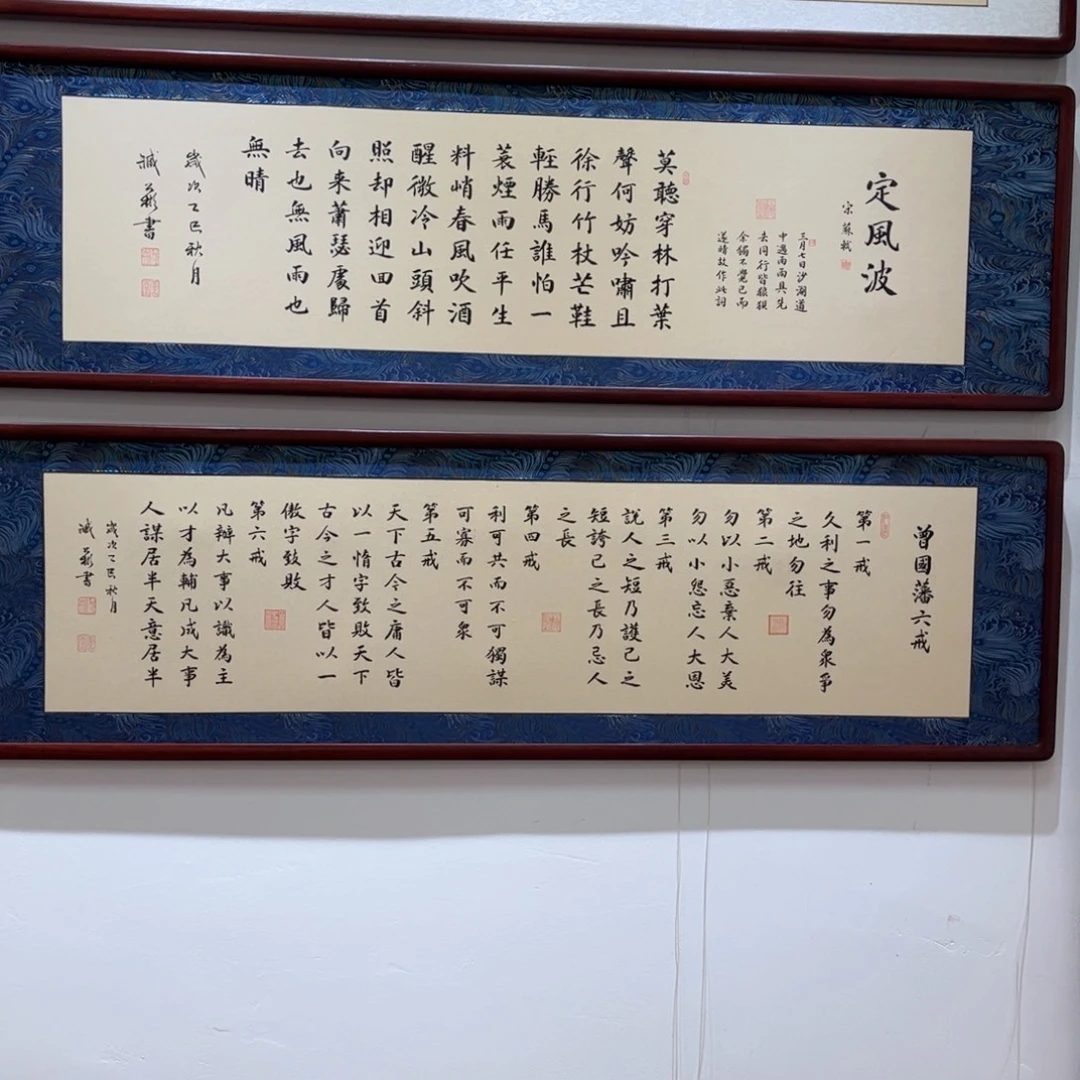 定風波
宋蘇軾
三月七日沙湖道
中遇雨雨具先
去同行皆狼狽
余獨不覺已而
遂晴故作此詞
莫聽穿林打葉
聲何妨吟嘯且
徐行竹杖芒鞋
輕勝馬誰怕一
蓑煙雨任平生
料峭春風吹酒
醒微冷山頭斜
照却相迎回首
向来蕭瑟處歸
去也無風雨也
無晴
歲次乙巳秋月
臧㽵書
曾國藩六戒
第一戒
久利之事勿為衆爭
之地勿往
第二戒
勿以小惡棄人大美
勿以小怨忘人大恩
第三戒
說人之短乃護己之
短誇己之長乃忌人
之長
第四戒
利可共而不可獨謀
可寡而不可衆
第五戒
天下古今之庸人皆
以一惰字致敗天下
古今之才人皆以一
傲字致敗
第六戒
凡辦大事以識為主
以才為輔凡成大事
人謀居半天意居半
歲次乙巳秋月